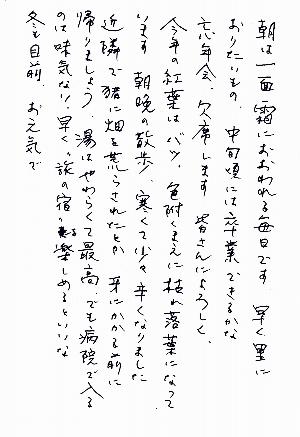 朝は一面霜におおわれる毎日です 早く里に
おりたいもの、中旬頃には卒業できるかな
忘年会、欠席します 皆さんによろしく、
今年の紅葉はバツ、色附くまえに枯れ落葉になって
います 朝晩の散歩、寒くて少々辛くなりました
近隣で猪に畑を荒らされたとか 牙にかかる前に
帰りましょう、湯はやわらくて最高、でも病院で入る
のは味気ない、早く、旅の宿で楽しめるといいな
冬も目前、お元気で